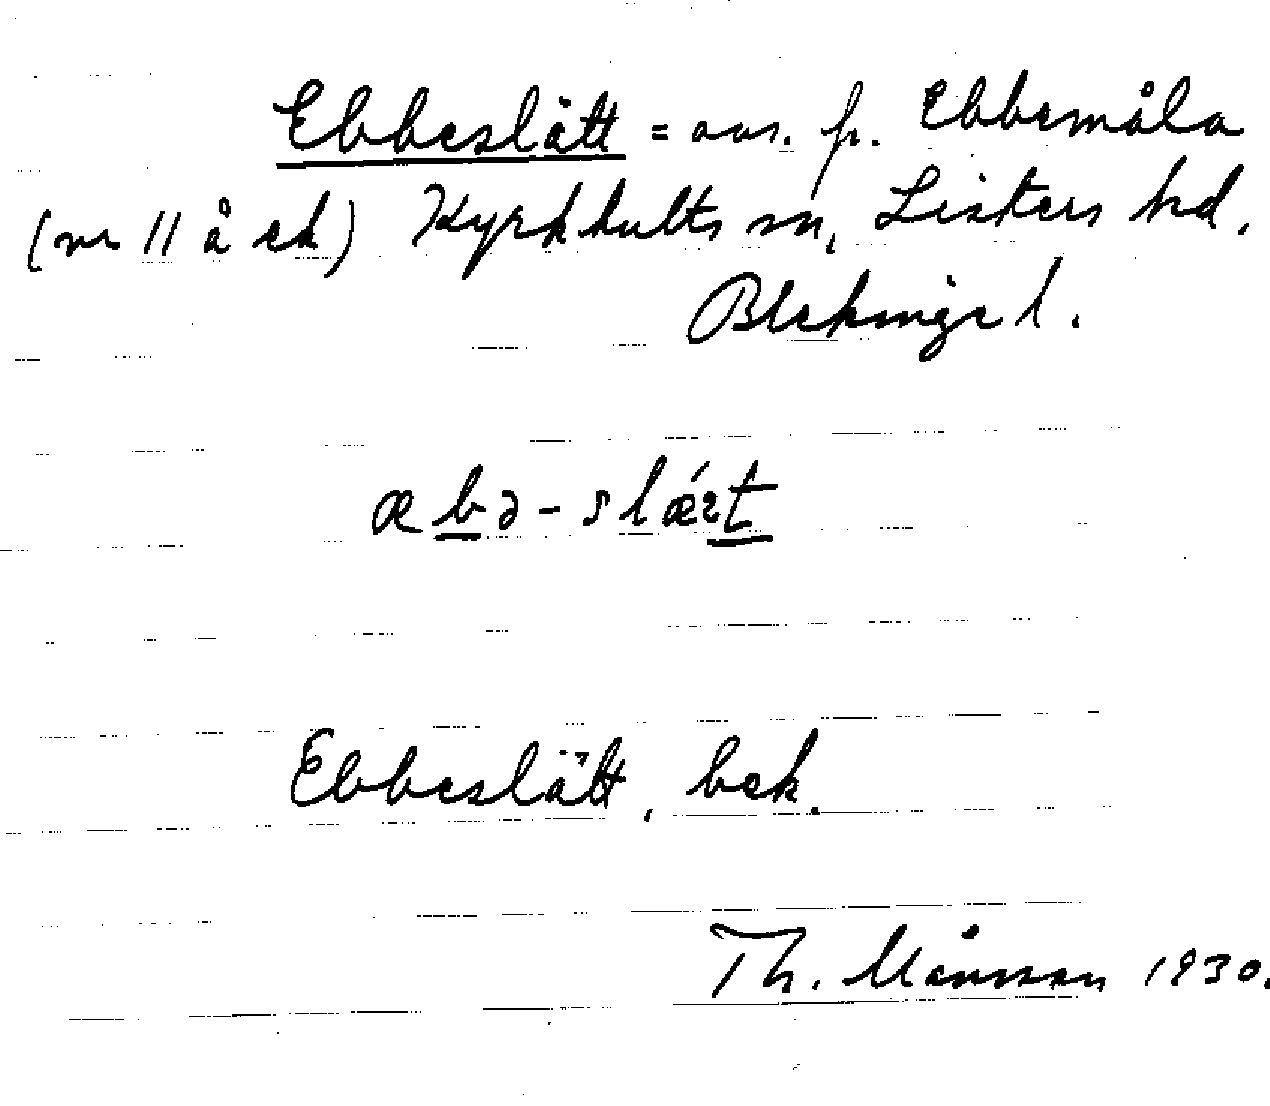 Ebbeslätt = avs. fr. Ebbemåla
(nr 11 å ek) Kyrkhults sn, Listers hd,
Blekinge l.
æbə-slǽt
Ebbeslätt, bek.
Th. Månsson 1930.